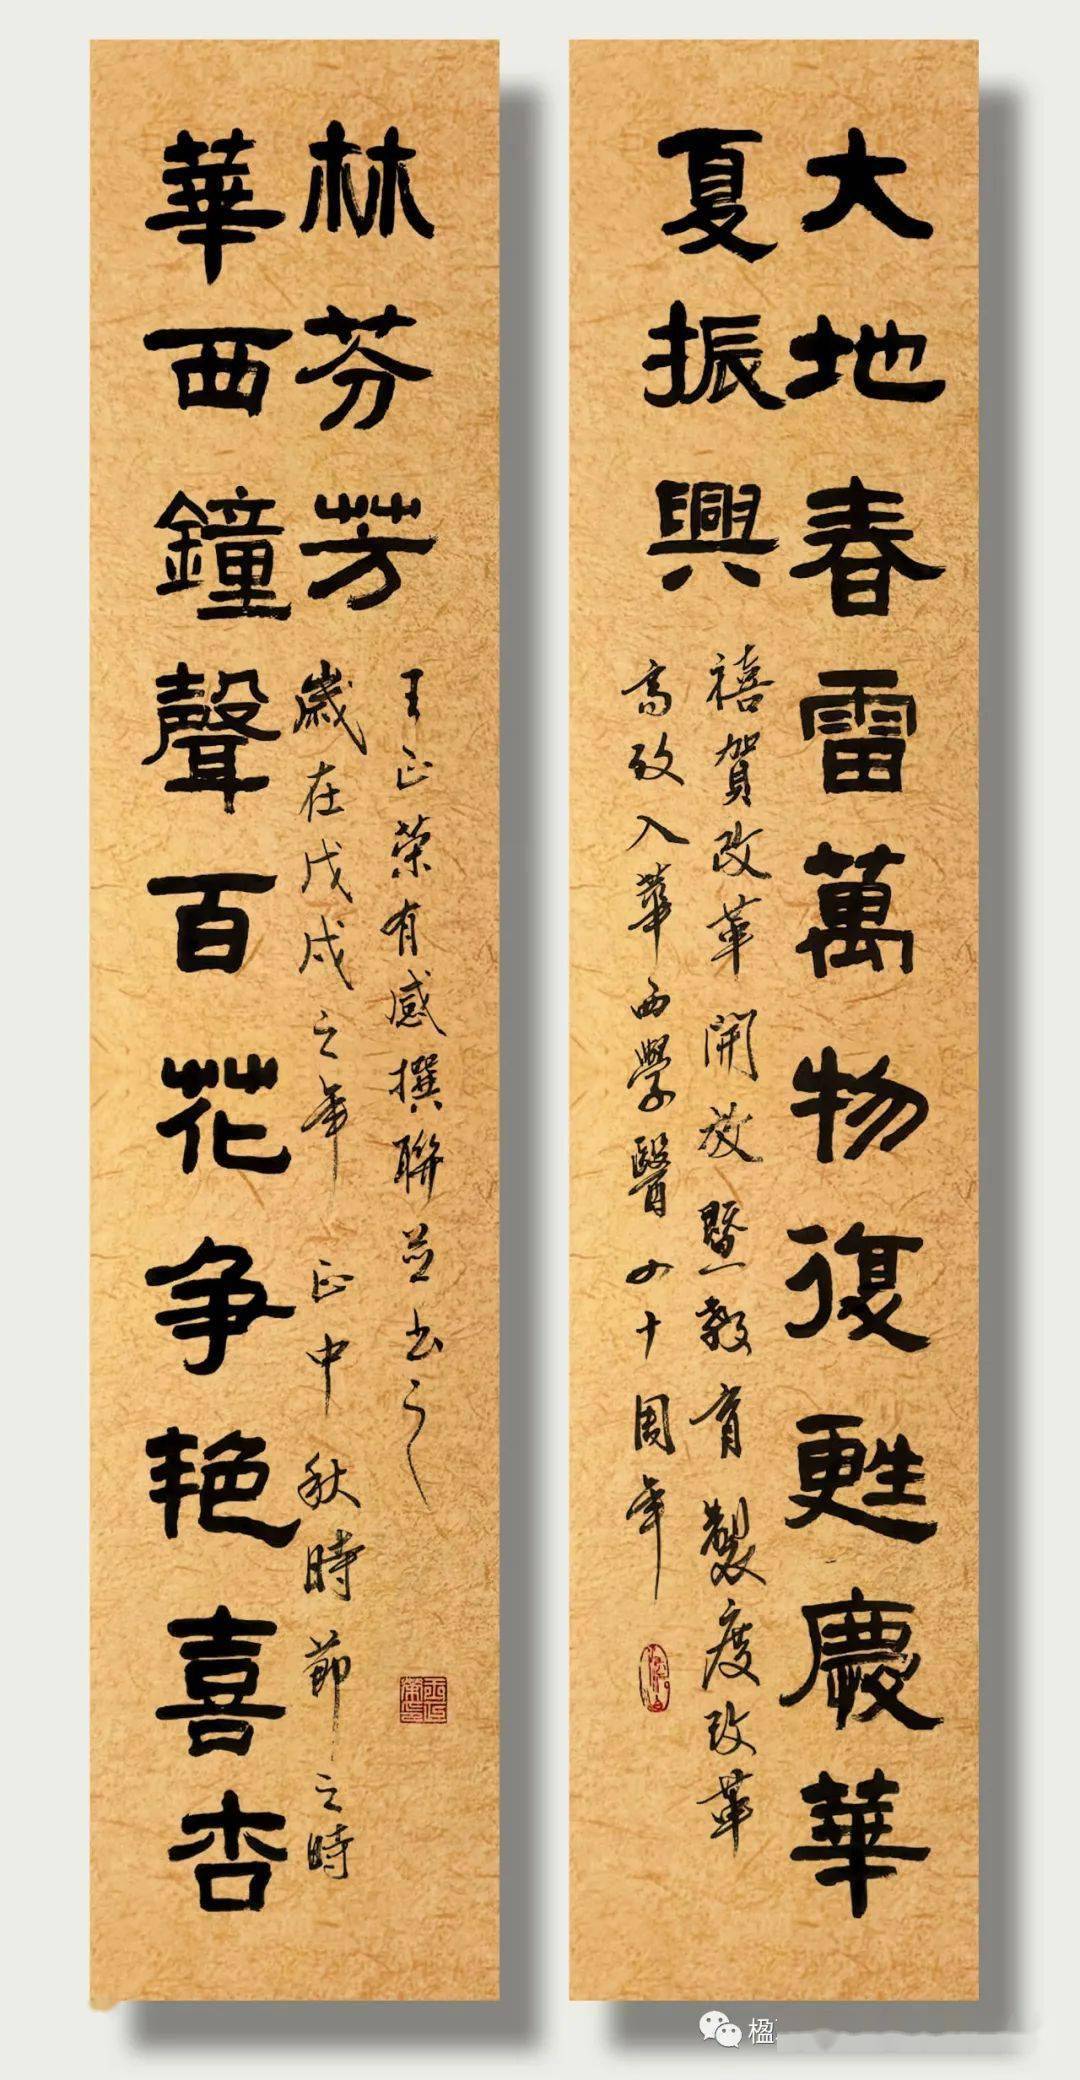 大地春雷萬物復甦慶華
夏振興
禧賀改革開放暨教育製度改革
高攷入華西學醫四十周年
華西鐘聲百花争艳喜杏
林芬芳
歲在戊戌之年 正中秋時節之時
王正荣有感撰聯並书之
楹